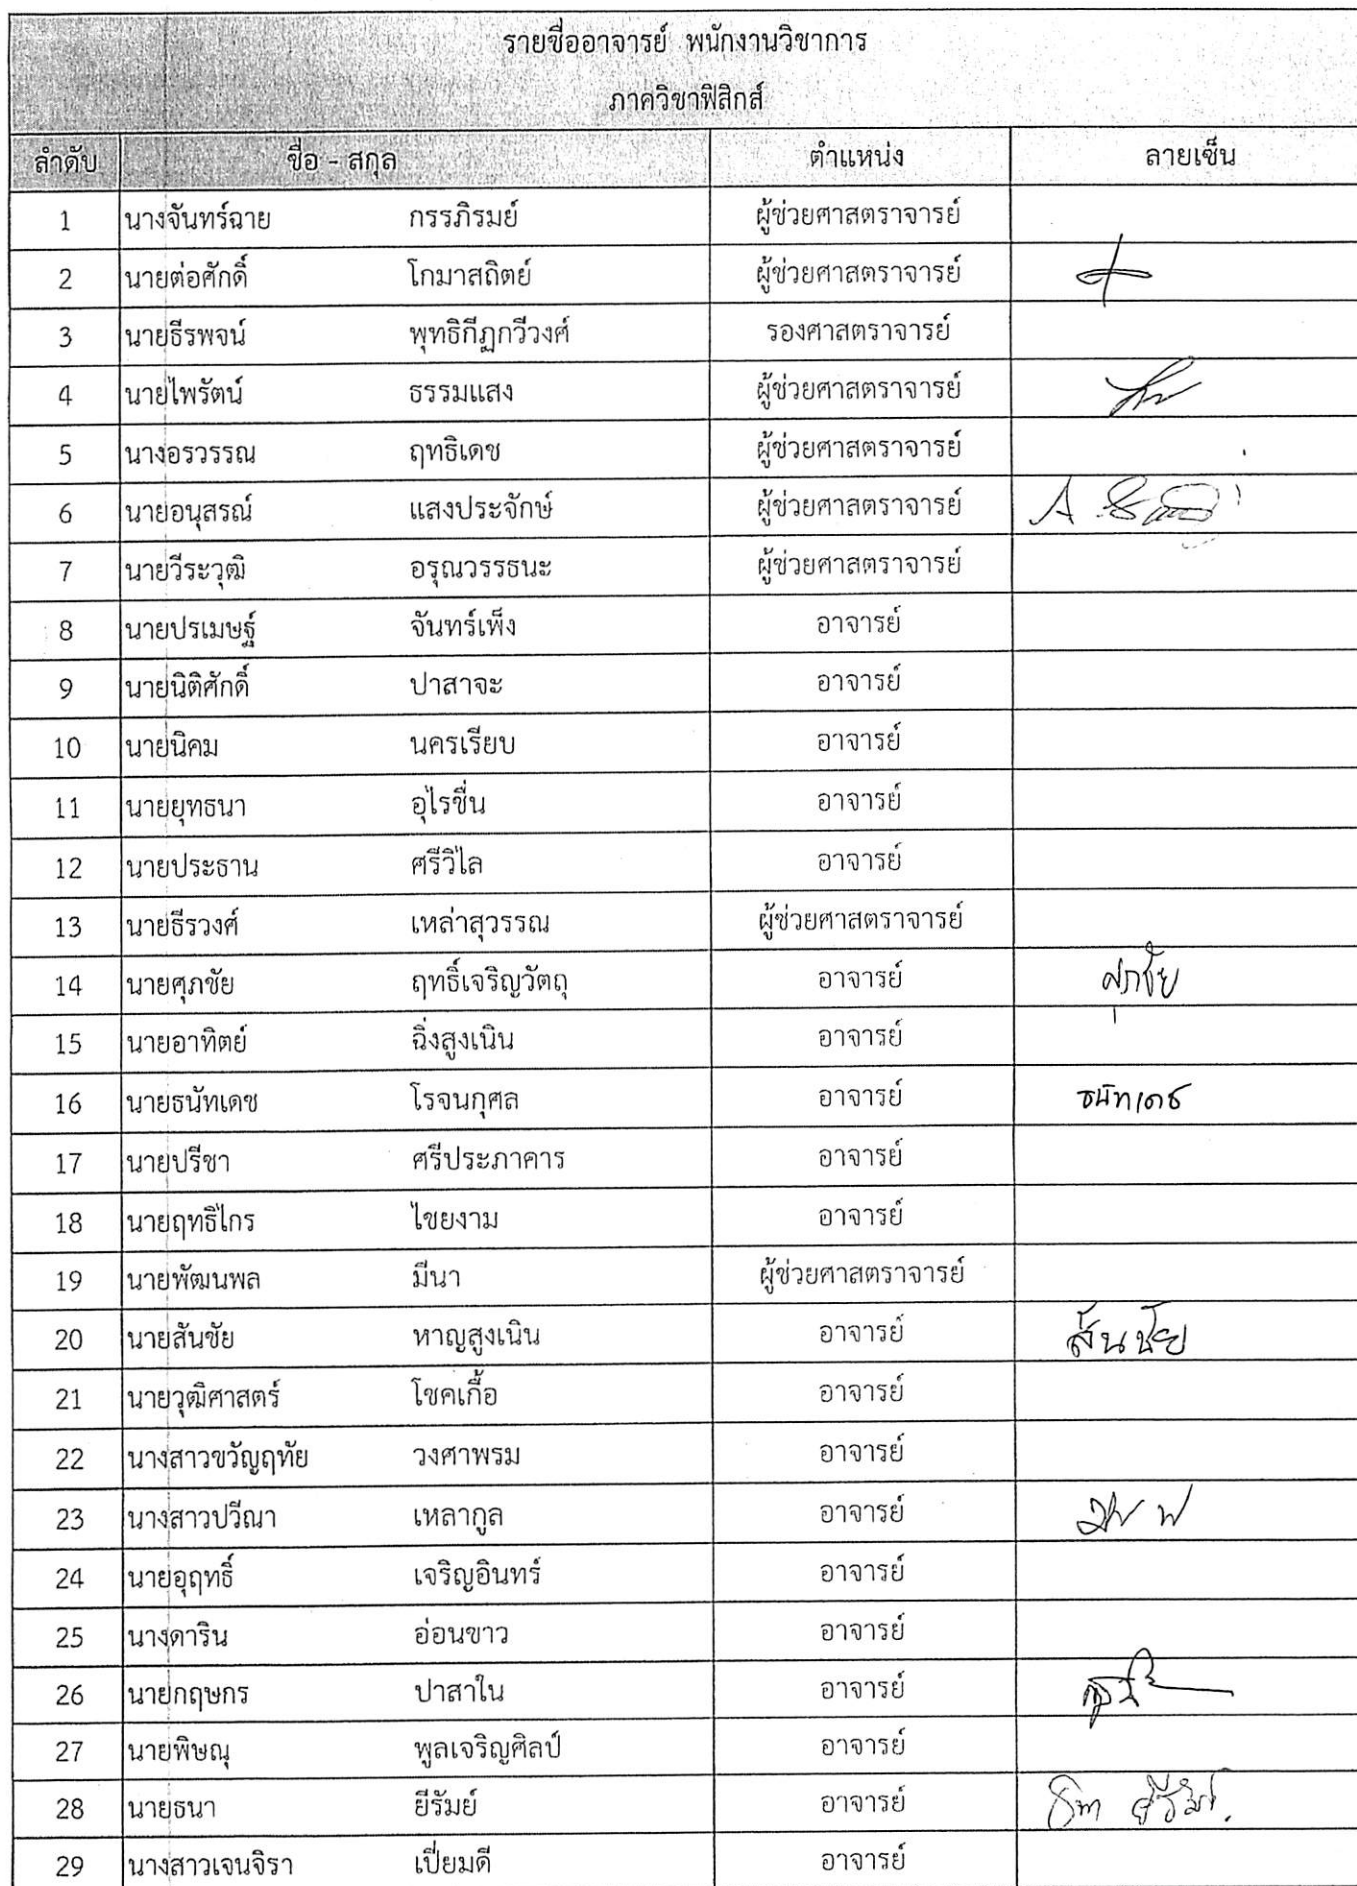 รายชื่ออาจารย์ พนักงานวิชาการ
ภาควิชาฟิสิกส์
ลำดับ ชื่อ - สกุล ตำแหน่ง ลายเซ็น
1 นางจันทร์ฉาย กรรภิรมย์ ผู้ช่วยศาสตราจารย์
2 นายต่อศักดิ์ โกมาสถิตย์ ผู้ช่วยศาสตราจารย์
3 นายธีรพจน์ พุทธิกีฏกวีวงศ์ รองศาสตราจารย์
4 นายไพรัตน์ ธรรมแสง ผู้ช่วยศาสตราจารย์
5 นางอรวรรณ ฤทธิเดช ผู้ช่วยศาสตราจารย์
6 นายอนุสรณ์ แสงประจักษ์ ผู้ช่วยศาสตราจารย์
7 นายวีระวุฒิ อรุณวรรธนะ ผู้ช่วยศาสตราจารย์
8 นายปรเมษฐ์ จันทร์เพ็ง อาจารย์
9 นายนิติศักดิ์ ปาสาจะ อาจารย์
10 นายนิคม นครเรียบ อาจารย์
11 นายยุทธนา อุไรชื่น อาจารย์
12 นายประธาน ศรีวิไล อาจารย์
13 นายธีรวงศ์ เหล่าสุวรรณ ผู้ช่วยศาสตราจารย์
14 นายศุภชัย ฤทธิ์เจริญวัตถุ อาจารย์ ศุภชัย
15 นายอาทิตย์ ฉิ่งสูงเนิน อาจารย์
16 นายธนัทเดช โรจนกุศล อาจารย์ ธนัทเดช
17 นายปรีชา ศรีประภาคาร อาจารย์
18 นายฤทธิไกร ไชยงาม อาจารย์
19 นายพัฒนพล มีนา ผู้ช่วยศาสตราจารย์
20 นายสันชัย หาญสูงเนิน อาจารย์ สันชัย
21 นายวุฒิศาสตร์ โชคเกื้อ อาจารย์
22 นางสาวขวัญฤทัย วงศาพรม อาจารย์
23 นางสาวปวีณา เหลากูล อาจารย์
24 นายอุฤทธิ์ เจริญอินทร์ อาจารย์
25 นางดาริน อ่อนขาว อาจารย์
26 นายกฤษกร ปาสาใน อาจารย์
27 นายพิษณุ พูลเจริญศิลป์ อาจารย์
28 นายธนา ยีรัมย์ อาจารย์
29 นางสาวเจนจิรา เปี่ยมดี อาจารย์